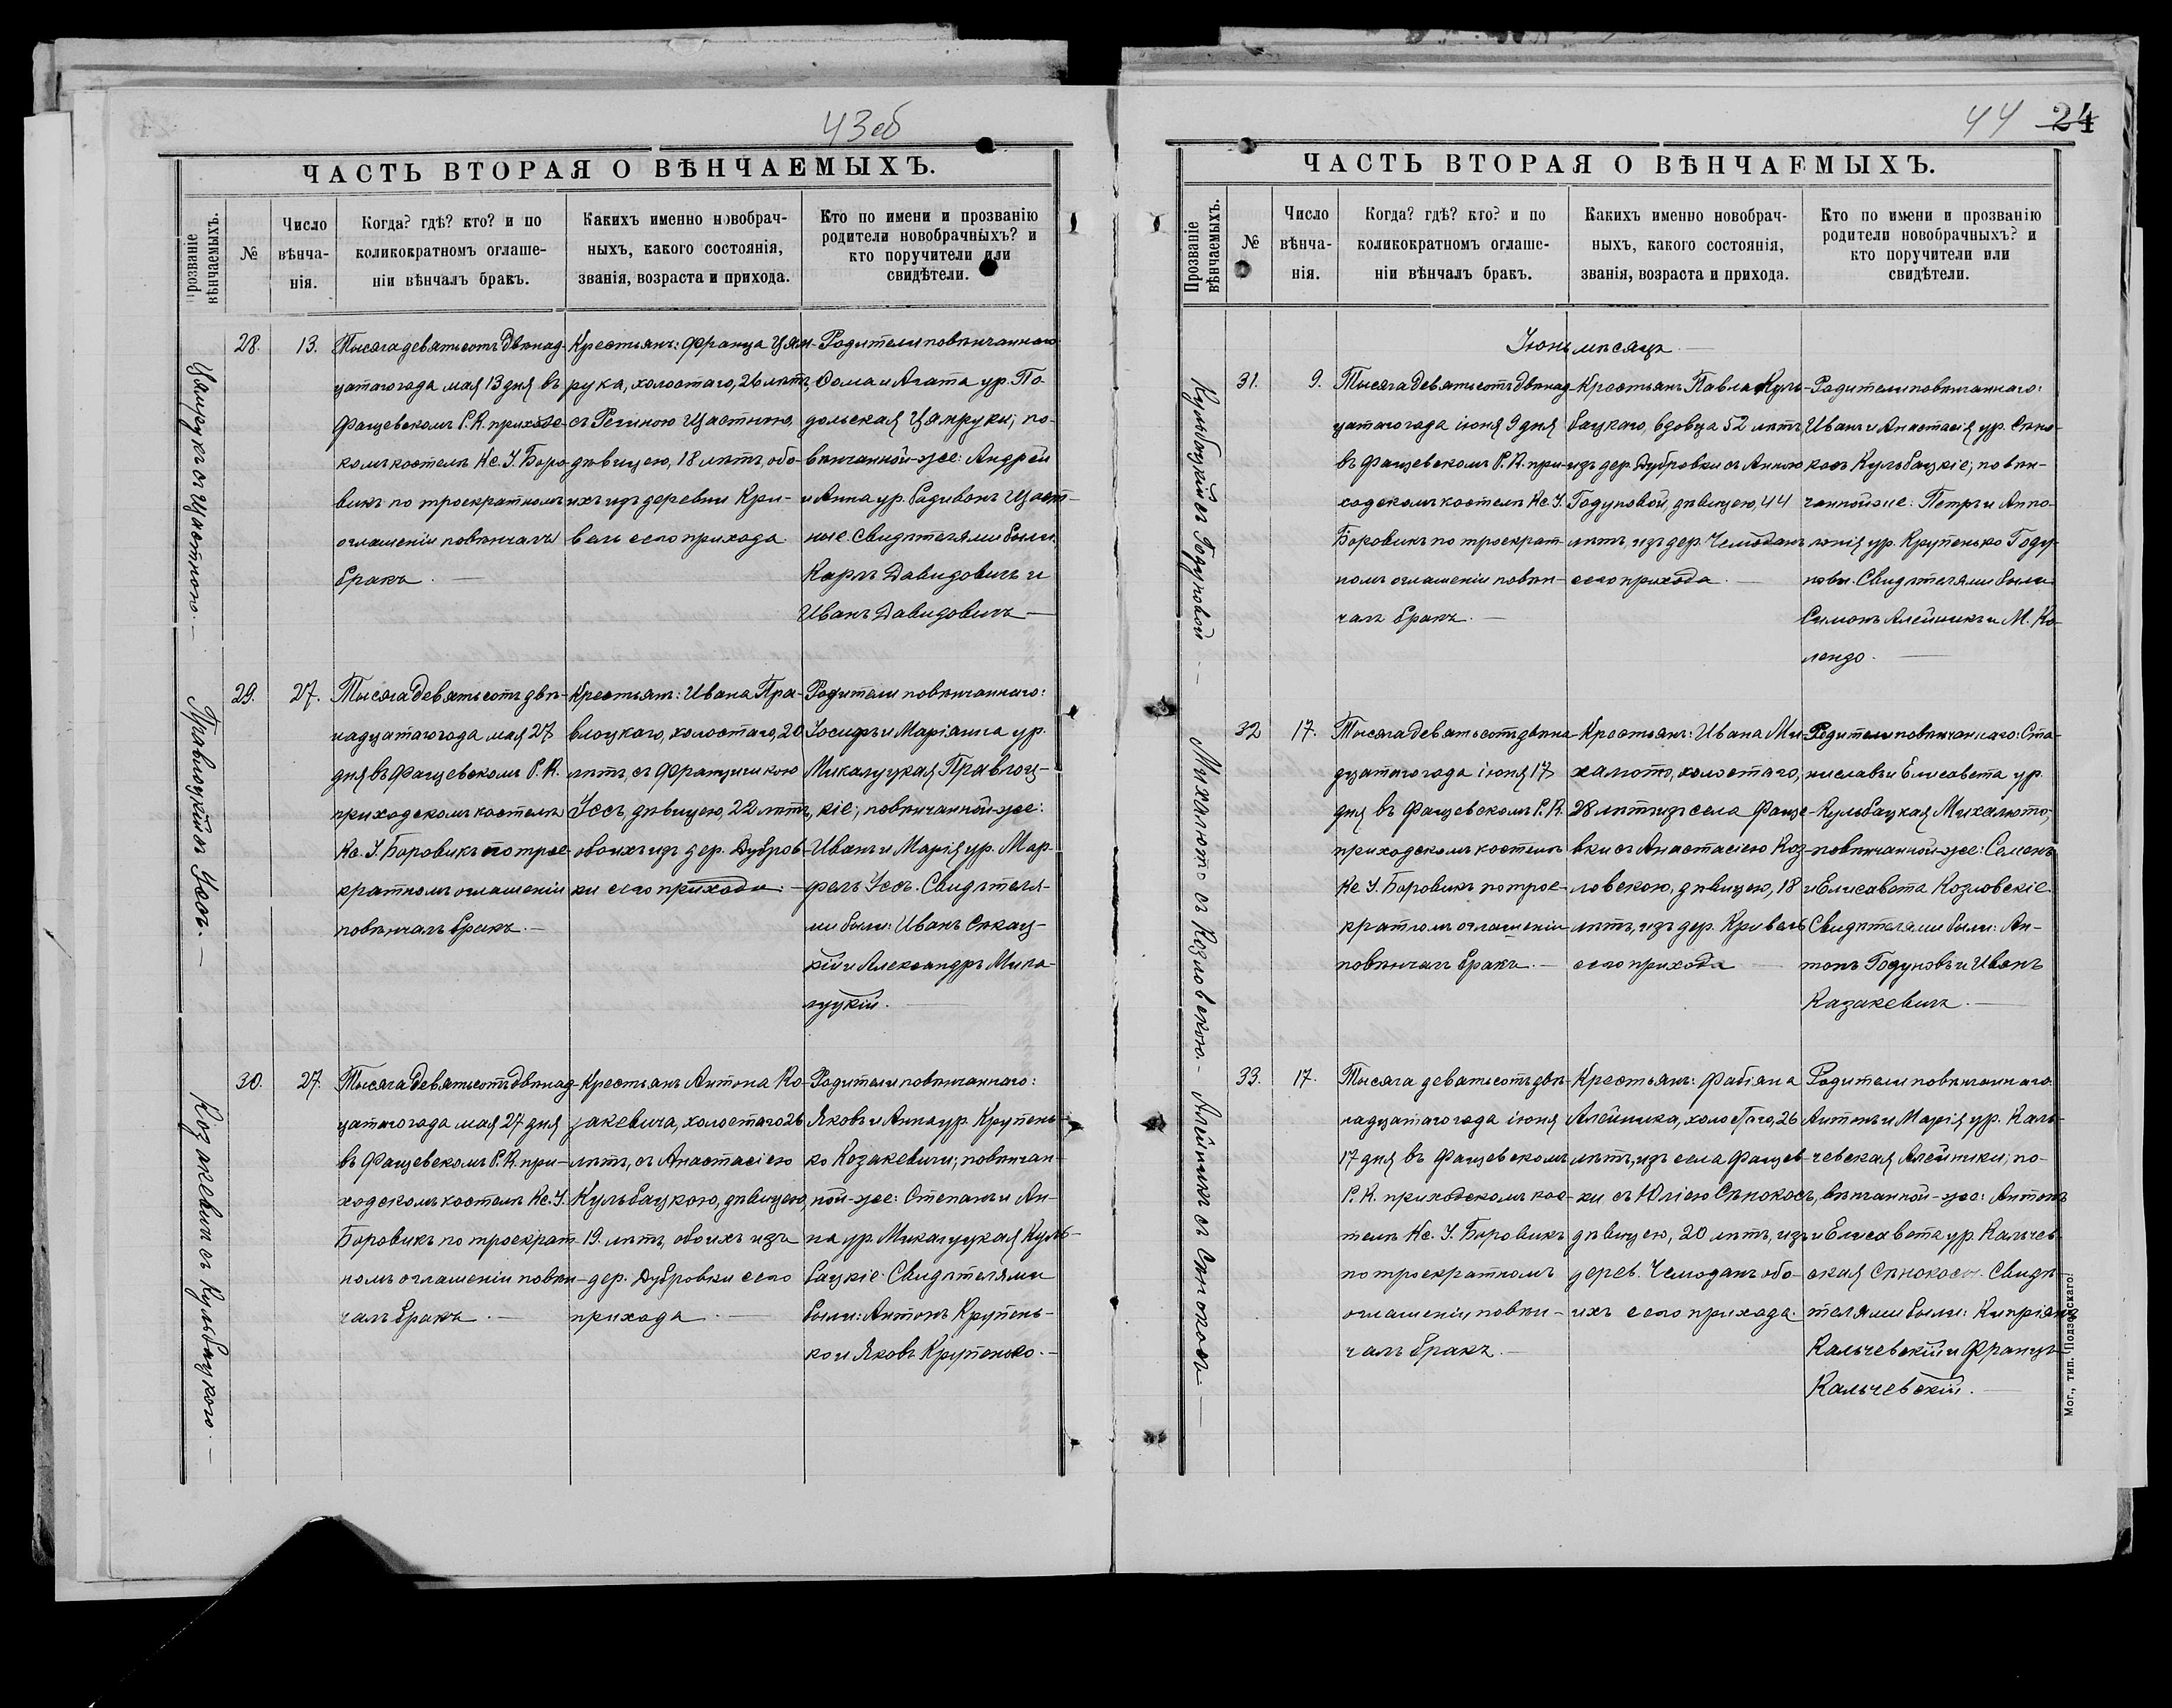 43об
ЧАСТЬ ВТОРАЯ О ВѢНЧАЕМЫХЪ.
Прозваніе вѣнчаемыхъ.
№
Число вѣнча-нія.
Когда? гдѣ? кто? и по
коликократномъ оглаше-
ніи вѣнчалъ бракъ.
Какихъ именно новобрач-
ныхъ, какого состоянія,
званія, возраста и прихода.
Кто по имени и прозванію
родители новобрачныхъ? и
кто поручители или
свидѣтели.
Цямрукъ съ Щастною. —
28.
13.
Тысяча девятьсотъ двѣнад-
цатаго года мая 13 дня въ
Фащевскомъ Р. К. приход-
комъ костелѣ Кс. І. Боро-
викъ по троекратномъ
оглашеніи повѣнчалъ
бракъ. —
Крестьянъ: Франца Цям-
рука, холостаго, 26 лѣтъ,
съ Региною Щастною,
дѣвицею, 18 лѣтъ, обо-
ихъ изъ деревни Кри-
вель сего прихода.
Родители повѣнчаннаго
Ѳома и Агата ур. По-
дольская Цямруки; по-
вѣнчанной-же: Андрей
и Анна ур. Радивонъ Щаст-
ные. Свидѣтелями были
Карлъ Давидовичъ и
Иванъ Давидовичъ —
29.
27.
Тысяча девятьсотъ двѣ-
надцатаго года мая 27
дня въ Фащевскомъ Р. К.
приходскомъ костелѣ
Кс. І. Боровикъ по трое-
кратномъ оглашеніи
повѣнчалъ бракъ. —
Крестьянъ: Ивана Пра-
влоцкаго, холостаго, 20
лѣтъ, съ Францишкою
Уссъ, дѣвицею, 22 лѣтъ,
обоихъ изъ дер. Дубров-
ки сего прихода. —
Родители повѣнчаннаго:
Іосифъ и Маріанна ур.
Микалуцкая Правлоц-
кіе; повѣнчанной-же:
Иванъ и Марія ур. Мар-
фель Уссъ. Свидѣтеля-
ми были: Иванъ
и Александръ Мика-
луцкій. —
Козакевичъ съ Кульбацкою. —
30.
27.
Тысяча девятьсотъ двѣнад-
цатаго года мая 27 дня
въ Фащевскомъ Р. К. при-
ходскомъ костелѣ Кс. І.
Боровикъ по троекрат-
номъ оглашеніи повѣн-
чалъ бракъ. —
Крестьянъ Антона Ко-
закевича, холостаго 26
лѣтъ, съ Анастасіею
Кульбацкою, дѣвицею,
19. лѣтъ, обоихъ изъ
дер. Дубровки сего
прихода —
Родители повѣнчаннаго:
Яковъ и Анна ур. Крупень-
ко Козакевичи; повѣнчан-
ной-же: Степанъ и Ан-
на ур. Микалуцкая Куль-
бацкіе. Свидѣтелями
были: Антонъ Крупень-
ко и Яковъ Крупенько. —
44 24
ЧАСТЬ ВТОРАЯ О ВѢНЧАЕМЫХЪ.
Прозваніе вѣнчаемыхъ.
№
Число вѣнча-нія.
Когда? гдѣ? кто? и по
коликократномъ оглаше-
ніи вѣнчалъ бракъ.
Какихъ именно новобрач-
ныхъ, какого состоянія,
званія, возраста и прихода.
Кто по имени и прозванію
родители новобрачныхъ? и
кто поручители или
свидѣтели.
Іюнь мѣсяцъ —
Кульбацкій съ Годуновой —
31.
9.
Тысяча девятьсотъ двѣнад-
цатаго года іюня 9 дня
въ Фащевскомъ Р. К. при-
ходскомъ костелѣ Кс. І.
Боровикъ по троекрат-
номъ оглашеніи повѣн-
чалъ бракъ. —
Крестьянъ Павла Куль-
бацкаго, вдовца 52 лѣтъ,
изъ дер. Дубровки съ Анною
Годуновой, дѣвицею, 44
лѣтъ, изъ дер. Чемоданъ
сего прихода. —
Родители повѣнчаннаго:
Иванъ и Анастасія ур. Сѣно-
косъ Кульбацкіе; повѣн-
чанной же: Петръ и Аппо-
лонія ур. Крупенько Году-
новы. Свидѣтелями были
Симонъ Алейникъ и М. Ко-
лендо. —
Михалюто съ Козловскою. —
32
17.
Тысяча девятьсотъ двѣна-
дцатаго года іюня 17
дня въ Фащевскомъ Р. К.
приходскомъ костелѣ
Кс. І. Боровикъ по трое-
кратномъ оглашеніи
повѣнчалъ бракъ. —
Крестьянъ: Ивана Ми-
халюто, холостаго,
28 лѣтъ изъ села Фаще-
вки съ Анастасіею Коз-
ловскою, дѣвицею, 18
лѣтъ, изъ дер. Кривель
сего прихода —
Родители повѣнчаннаго: Ста-
ниславъ и Елисавета ур.
Кульбацкая Михалюто;
повѣнчанной-же: Семенъ
и Елисавета Козловскіе.
Свидѣтелями были: Ан-
тонъ Годуновъ и Иванъ
Казакевичъ. —
Алейникъ съ Сѣнокосъ —
33.
17.
Тысяча девятьсотъ двѣ-
надцатаго года іюня
17 дня въ Фащевскомъ
Р. К. приходскомъ кос-
телѣ Кс. І. Боровикъ
по троекратномъ
оглашеніи повѣн-
чалъ бракъ. —
Крестьянъ: Фабіана
Алейника, холостаго, 26
лѣтъ, изъ села Фащев-
ки съ Юліею Сѣнокосъ,
дѣвицею, 20 лѣтъ, изъ
дерев. Чемоданъ обо-
ихъ сего прихода.
Родители повѣнчаннаго
Антонъ и Марія ур. Каль-
чевская Алейники; по-
вѣнчанной-же: Антонъ
и Елисавета ур. Кальчев-
ская Сѣнокосъ. Свидѣ-
телями были: Кипріянъ
Кальчевскій и Францъ
Кальчевскій. —
Мог., тип. Подземскаго.